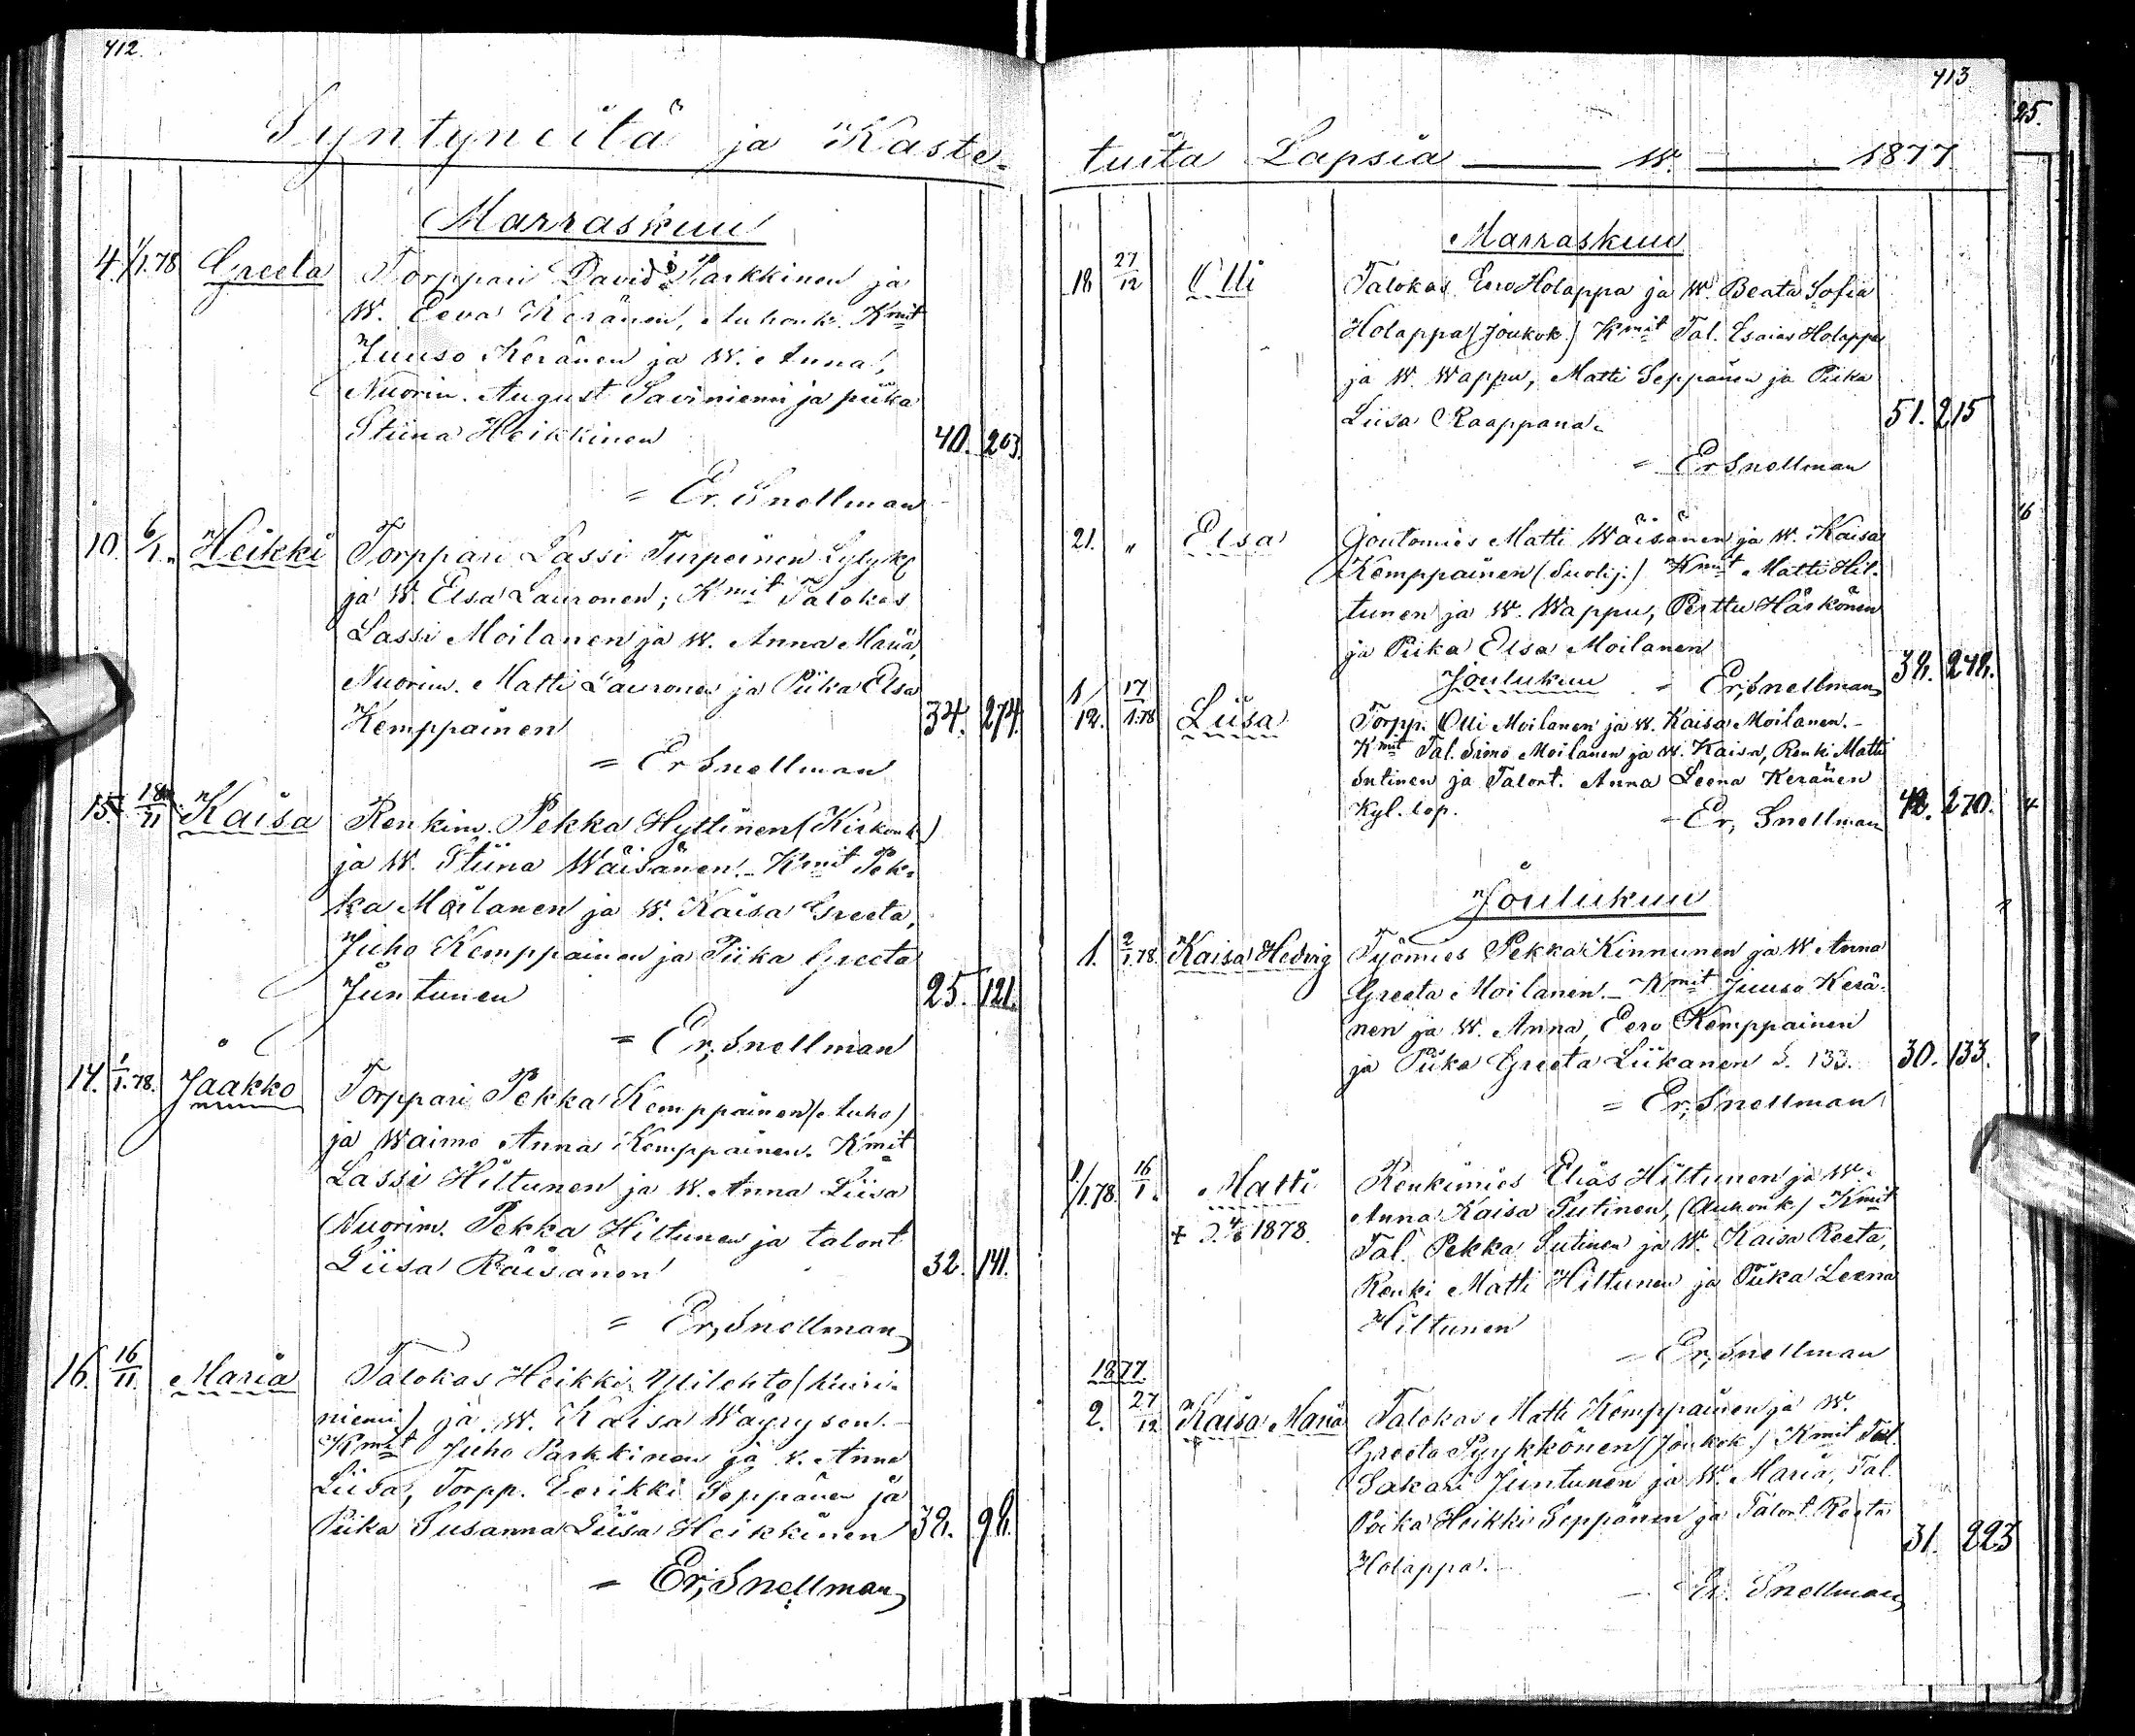 412.
Syntyneitä ja Kaste-
Marraskuu
4. 1/1.78 Greeta Torppari David Parkkinen ja
W. Eeva Keränen, Auhonk. Kmit
Juuso Keränen ja W. Anna,
Nuorim. August Saviniemi ja piika
Stiina Heikkinen 40. 203.
= Er. Snellman
10. 6/1. Heikki Torppari Lassi Turpeinen
ja W. Elsa Lauronen; Kmit Talokas
Lassi Moilanen ja W. Anna Maria,
Nuorim. Matti Lauronen ja Piika Elsa
Kemppainen 34. 274.
= Er Snellman
15. 18/11 Kaisa Renkim. Pekka Hyttinen (Kirkonk.)
ja W. Stiina Wäisänen. - Kmit Pek-
ka Moilanen ja W. Kaisa Greeta,
Juho Kemppainen ja Piika Greeta
Juntunen 25. 121.
= Er; Snellman
14. 1/1.78. Jaakko Torppari Pekka Kemppainen (Auho)
ja Waimo Anna Kemppainen. Kmit
Lassi Hiltunen ja W. Anna Liisa
Nuorim. Pekka Hiltunen ja talont
Liisa Räisänen 32. 141.
= Er, Snellman
16. 16/11. Maria Talokas Heikki Ylilehto (Kuiri-
niemi) ja W. Kaisa Wäyrysen. -
Kmit Juho Parkkinen ja v. Anna
Liisa, Torpp. Eerikki Seppänen ja
Piika Susanna Liisa Heikkinen 32. 92.
= Er, Snellman
413
25.
tuita Lapsia W. 1877
Marraskuu
18 27/12 Olli Talokas Eero Holappa ja W. Beata Sofia
Holappa (Joukok.) Kmit Tal. Esaias Holappa
ja W. Wappu, Matti Seppänen ja Piika
Liisa Raappana. 51. 215
= Er Snellman
21. " Elsa Joutomies Matti Wäisänen ja W. Kaisa
Kemppainen (Suolij.) Kmit Matti Hil-
tunen ja W. Wappu, Perttu Härkönen
ja Piika Elsa Moilanen 32. 242.
Joulukuu = Er, Snellman
1/12. 17/1.78 Liisa Torpp. Olli Moilanen ja W. Kaisa Moilanen. -
Kmit Tal. Simo Moilanen ja W. Kaisa, Renki Matti
Sutinen ja Talont. Anna Leena Keränen
Kyl. lop. - Er, Snellman 42. 270.
Joulukuu
1. 2/1.78. Kaisa Hedvig Työmies Pekka Kinnunen ja W. Anna
Greeta Moilanen. - Kmit Juuso Kerä-
nen ja W. Anna, Eero Kemppainen
ja Piika Greeta Liikanen S. 133. 30. 133.
= Er; Snellman
1/1.78. 16/1. Matti Renkimies Elias Hiltunen ja W.
Anna Kaisa Sutinen, (Auhonk) Kmit
1878. Tal. Pekka Sutinen ja W. Kaisa Reeta,
Renki Matti Hiltunen ja Piika Leena
Hiltunen
= Er, Snellman
1877.
2. 27/12 Kaisa Maria Talokas Matti Kemppainen ja W.
Greeta Pyykkönen (Joukok.) Kmit Tal.
Sakari Juntunen ja W. Maria, Tal.
Poika Heikki Seppänen ja Talont. Reeta
Holappa. - 31. 223
- Er. Snellman